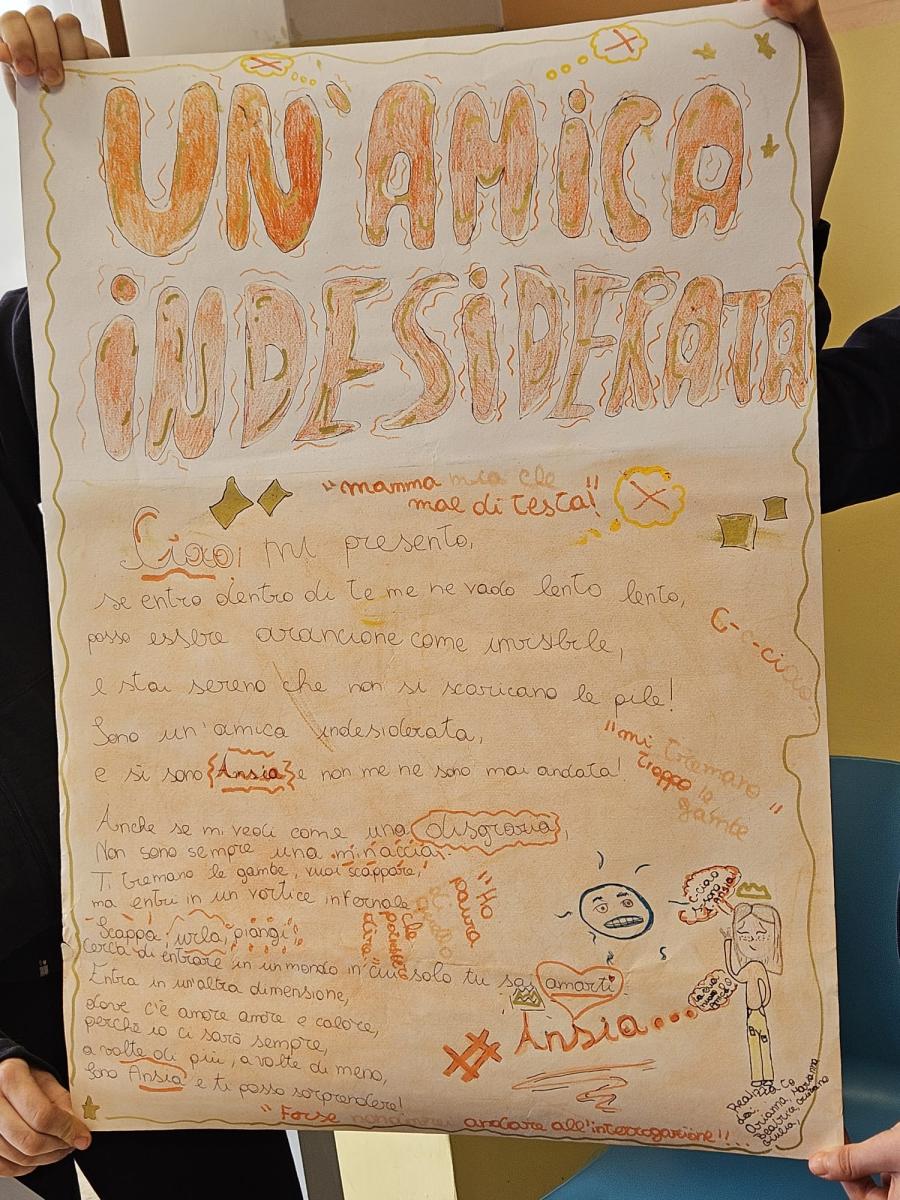 UN'AMICA
INDESIDERATA
"mamma mia che
mal di testa!"
Ciao, mi presento,
se entro dentro di te me ne vado lento lento,
posso essere arancione come invisibile,
e stai sereno che non si scaricano le pile!
C-c-ciao
Sono un'amica indesiderata,
e sì sono Ansia e non me ne sono mai andata!
"mi tremano
troppo le
gambe"
Anche se mi vedi come una disgrazia,
Non sono sempre una minaccia.
Ti tremano le gambe, vuoi scappare,
ma entri in un vortice infernale
"Ho
paura
di quello
che
potrebbe
dire"
Scappa, urla, piangi,
cerca di entrare in un mondo in cui solo tu sai amarti
Entra in un'altra dimensione,
dove c'è amore amore e calore,
perché io ci sarò sempre,
a volte di più, a volte di meno,
Sono Ansia e ti posso sorprendere!
C-ciao
sono
Ansia
#Ansia...
"Forse andare all'interrogazione"!..
Realizzato
da:
Arianna, Marianna
Beatrice,
Giulia,